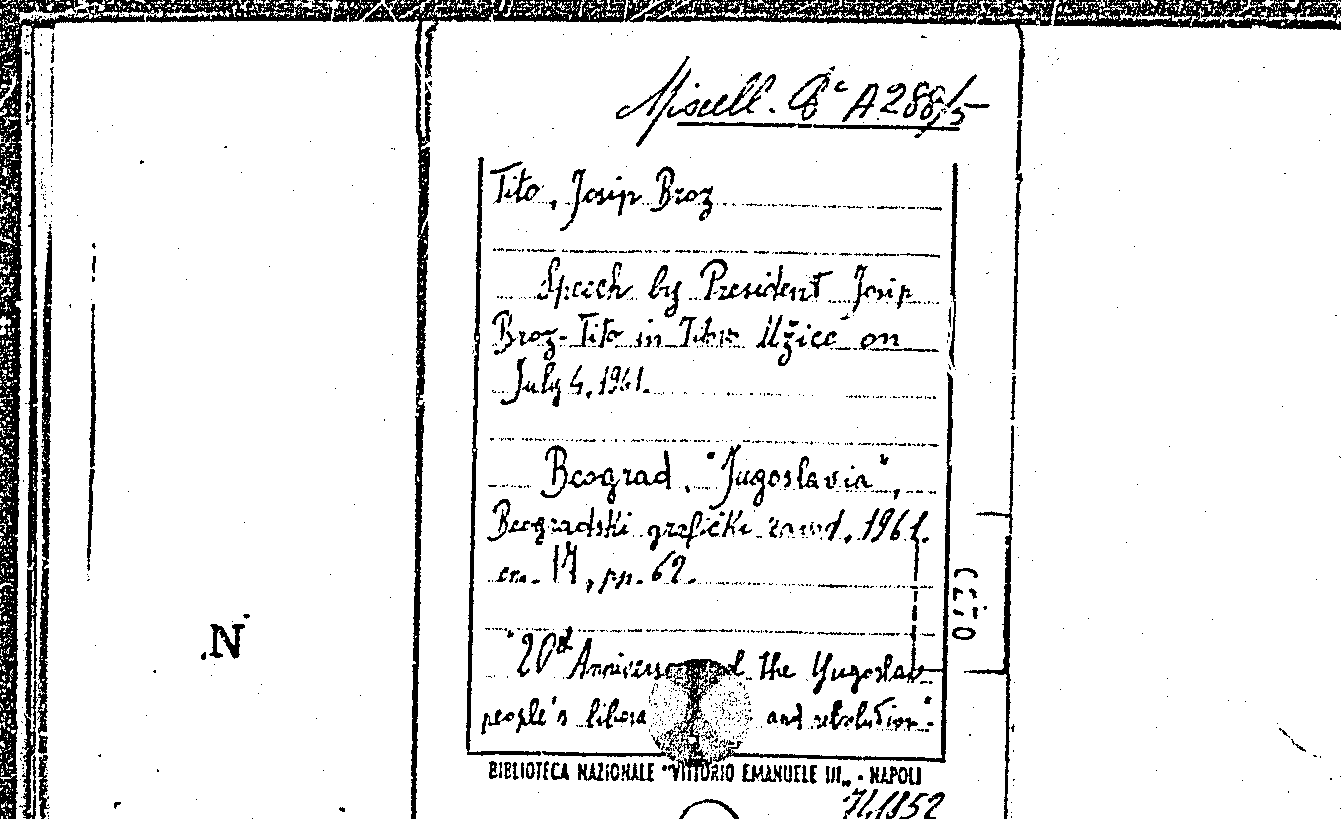 Miscell. Bc A 288/5
Tito, Josip Broz
Speech by President Josip
Broz-Tito in Titovo Užice on
July 4, 1961.
Beograd, "Jugoslavia",
Beogradski grafički zavod, 1961.
cm. 17, pp. 62.
"20th the Yugoslav
people's and revolution".
BIBLIOTECA NAZIONALE "VITTORIO EMANUELE III„ - NAPOLI
N